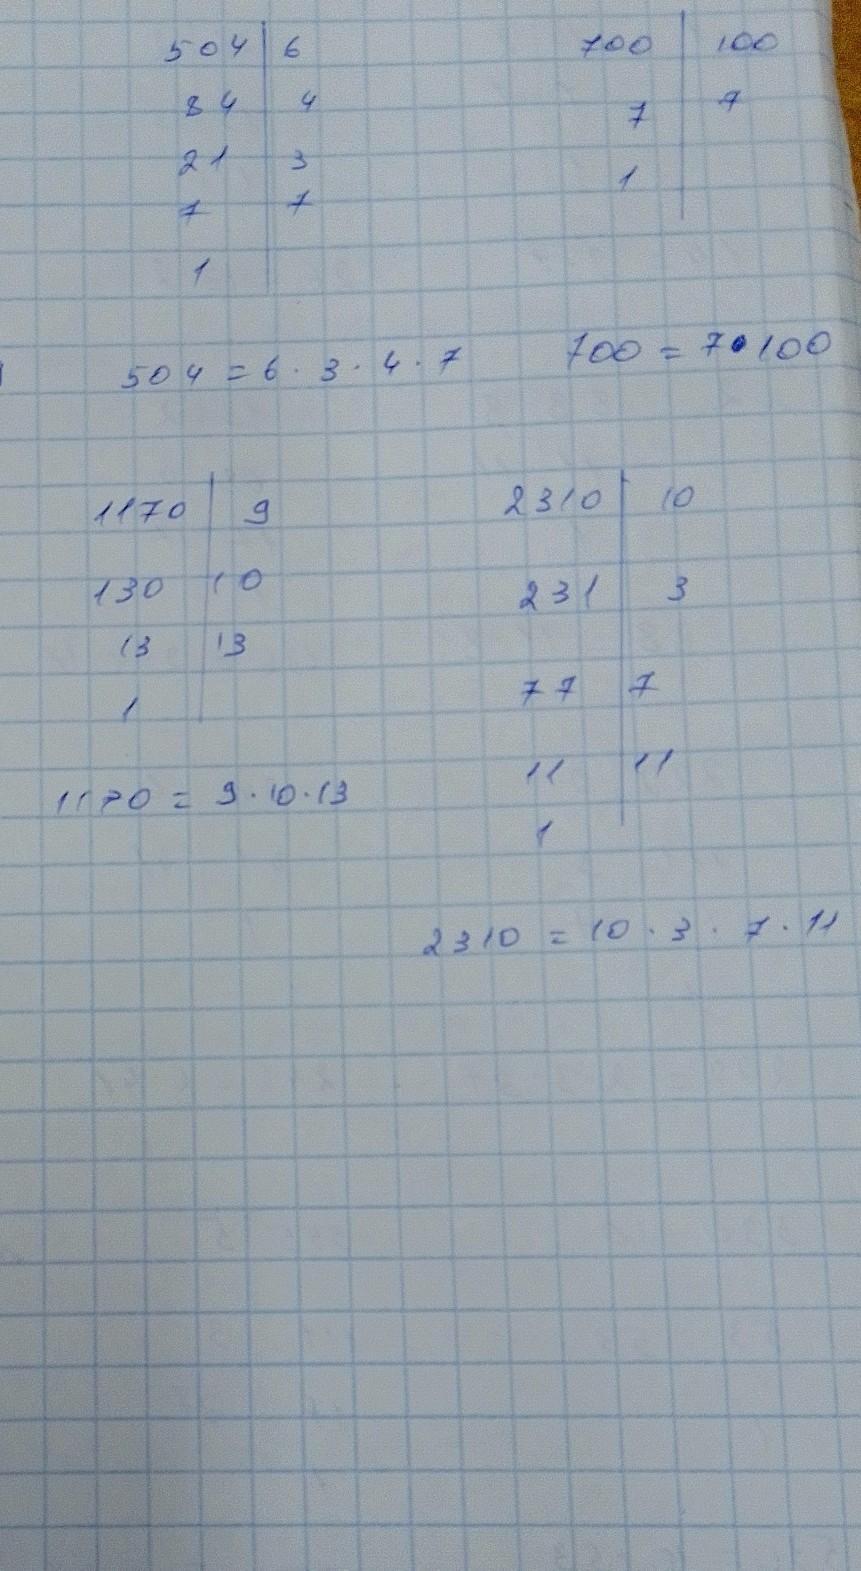 504 | 6
84 | 4
21 | 3
7 | 7
1
700 | 100
7 | 7
1
504 = 6 · 3 · 4 · 7
700 = 7 · 100
1170 | 9
130 | 10
13 | 13
1
1170 = 9 · 10 · 13
2310 | 10
231 | 3
77 | 7
11 | 11
1
2310 = 10 · 3 · 7 · 11